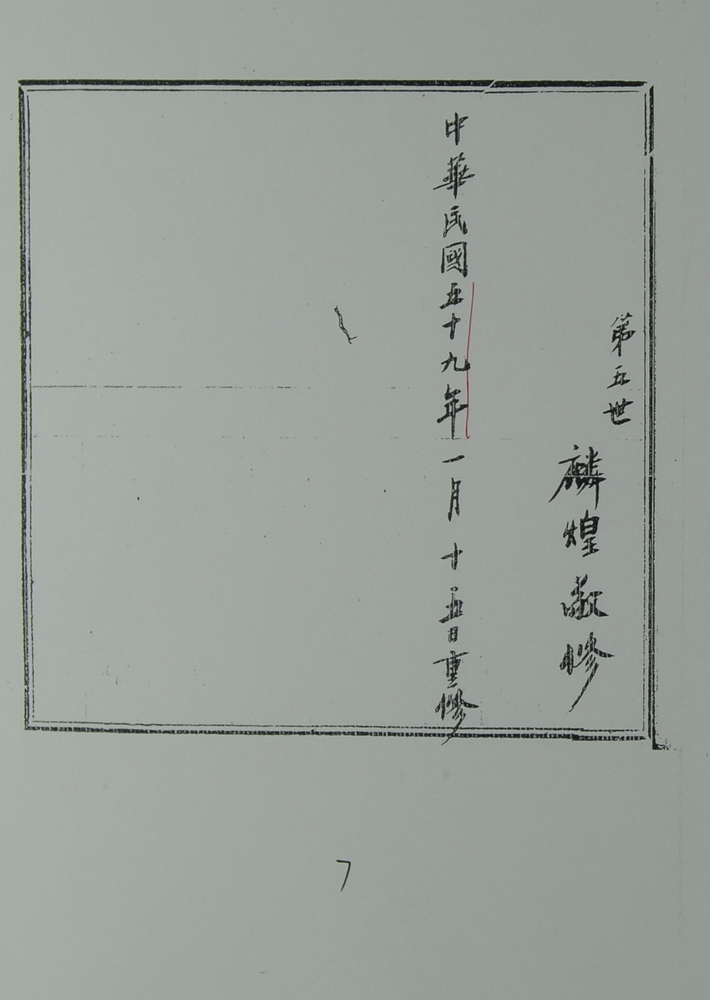 第五世 麟煌敬修
中華民國五十九年一月十五日重修
7